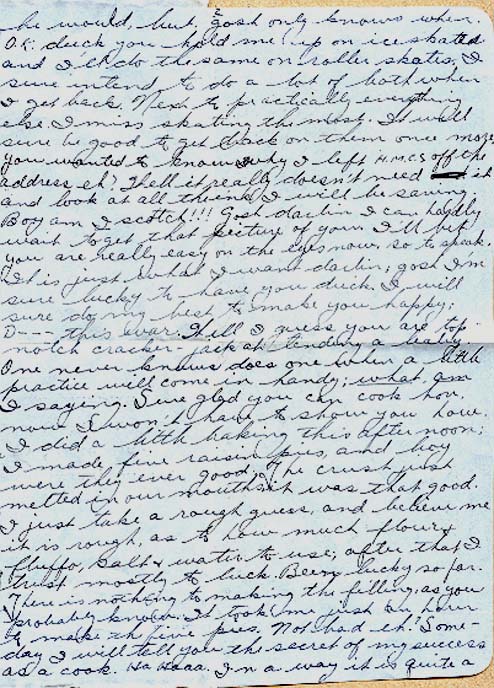 he would, but, & gosh only knows when.
O.K. duck you hold me up on ice skates
and I'll do the same on roller skates. I
sure intend to do a lot of both when
I get back. Next to practically everything
else I miss skating the most. It will
sure be good to get back on them once more
you wanted to know why I left H.M.C.S off the
address eh? Well it really doesn't need it
and look at all the ink I will be saving.
Boy am I scotch!!! Gosh darlin I can hardly
wait to get that picture of your I'll bet
you are really easy on the eyes now, so to speak.
It is just what I want darlin; gosh I'm
sure lucky to have you duck. I will
sure do my best to make you happy;
D--- this war. Well I guess you are top-
notch cracker-jack at tending a baby.
One never knows does one when a little
practice will come in handy; what am
I saying. Sure glad you can cook hon,
now I won't have to show you how.
I did a little baking this afternoon;
I made five raisin pies, and boy
were they ever good. The crust just
melted in our mouths it was that good.
I just take a rough guess, and believe me
it is rough, as to how much flour &
fluffo, salt & water to use; after that I
trust mostly to luck. Been lucky so far.
There is nothing to making the filling as you
probably know. It took me just an hour
to make the five pies. Not bad eh! Some-
day I will tell you the secret of my success
as a cook. Ha Haaa. In a way it is quite a